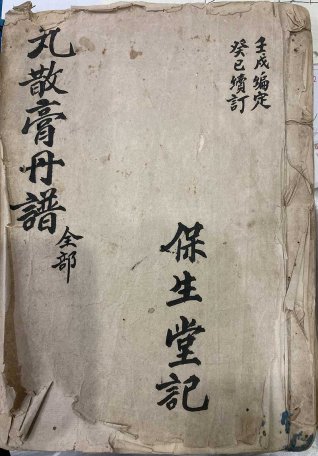 壬戌編定
癸巳續訂
保生堂記
丸散膏丹譜
全部